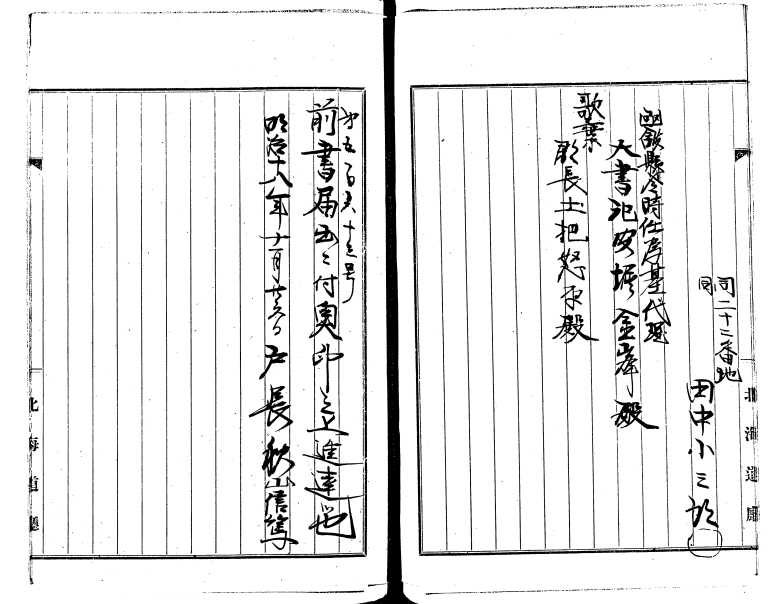 同二十二番地
同
田中小三郎
函館縣令時任為基代理
大書記安場金峯殿
歌棄
長土
殿
第五百六十三号
前書届出ニ付奥印之上進達也
明治十八年十一月廿六日
戸長秋山信篤
北海道廳
北海道廳